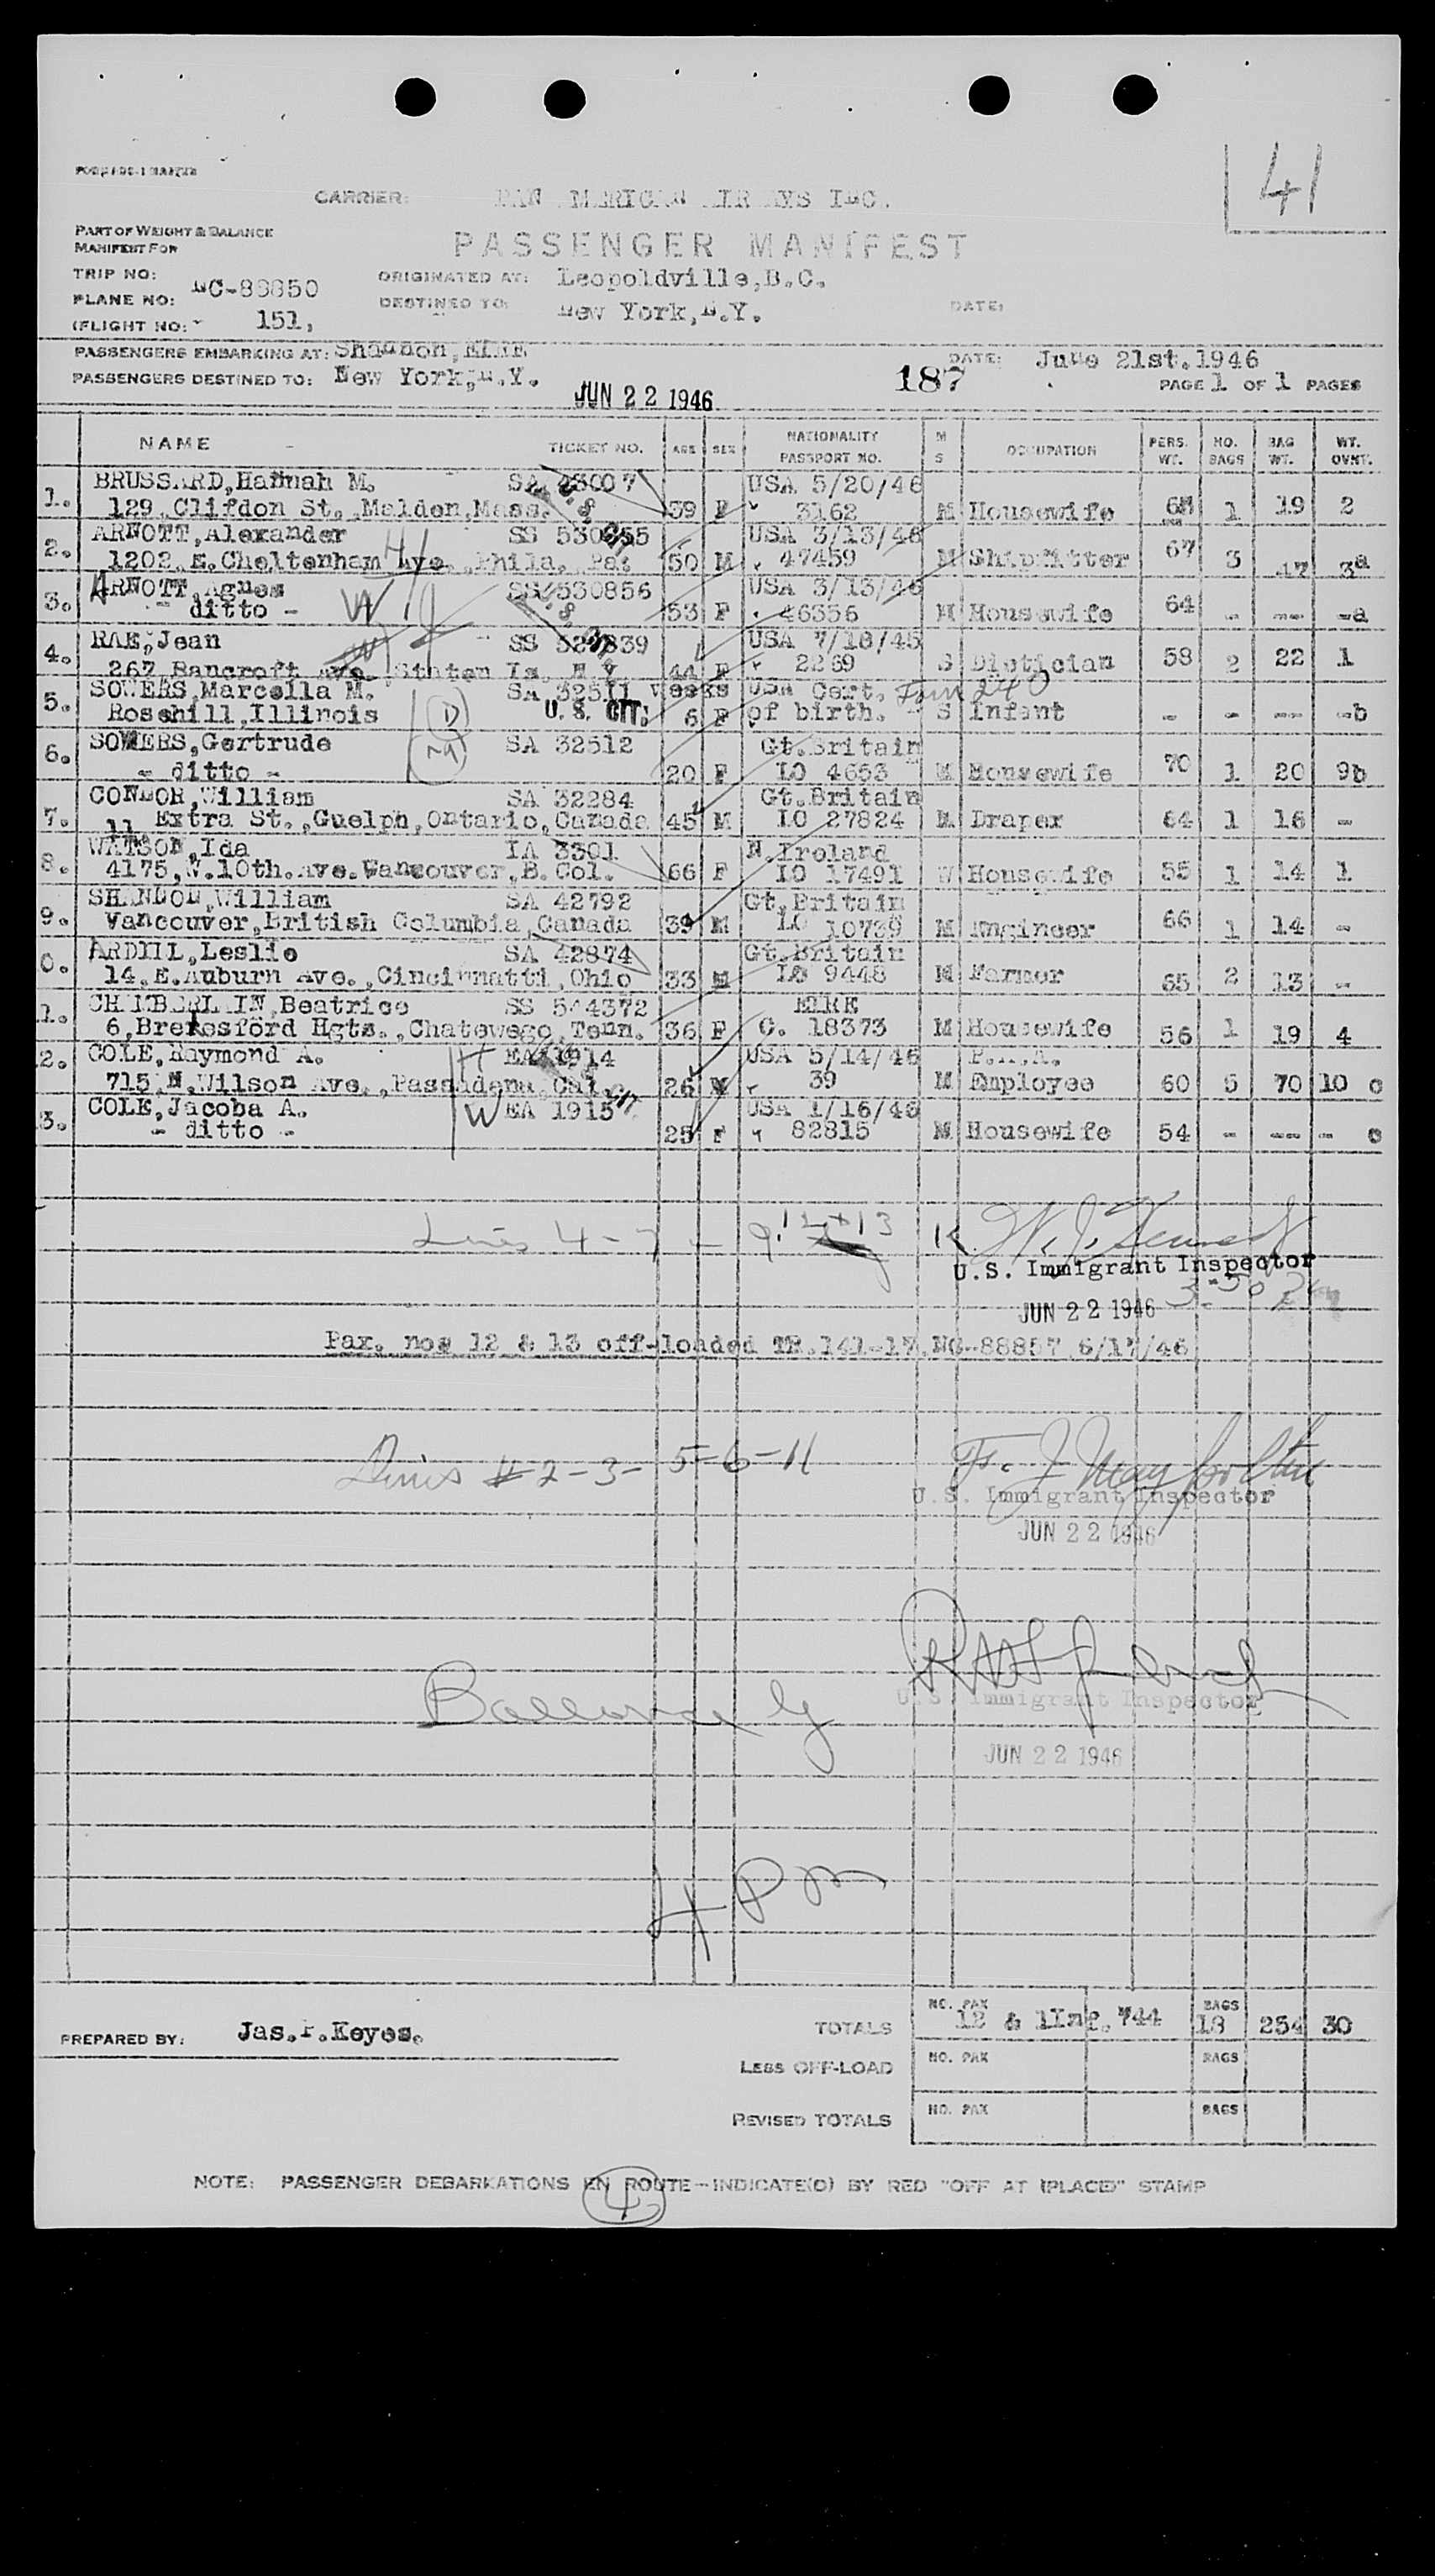 41
CARRIER: PAN AMERICAN AIRWAYS INC.
PART OF WEIGHT & BALANCE
MANIFEST FOR
PASSENGER MANIFEST
TRIP NO:
PLANE NO: NC-88850
(FLIGHT NO: 151,
ORIGINATED AT: Leopoldville,B.C.
DESTINED TO: New York,N.Y.
DATE:
PASSENGERS EMBARKING AT: Shannon, EIRE
DATE: June 21st.1946
PASSENGERS DESTINED TO: New York,N.Y.
187
PAGE 1 OF 1 PAGES
JUN 22 1946
NAME TICKET NO. AGE SEX NATIONALITY PASSPORT NO. M S OCCUPATION PERS. WT. NO. BAGS BAG WT. WT. OVNT.
1. BRUSSARD,Hannah M. SA 43007 USA 5/20/46
129,Clifdon St.,Malden,Mass. 39 F 3162 M Housewife 1 19 2
2. ARNOTT,Alexander SS 530855 USA 3/13/46
1202,E.Cheltenham Ave.,Phila. Pa. 50 M 47459 M Shipfitter 67 3 47 3a
3. ARNOTT,Agnes SS 530856 USA 3/13/46
- ditto - W 53 F 46356 M Housewife 64 - -- -a
4. RAE,Jean USA 7/18/45
267,Bancroft Ave. Staten Is. N Y 44 F 2269 S Dietician 58 2 22 1
5. SOWERS,Marcella M. SA 32511 weeks USA Cert. Form 240
Rosehill,Illinois U. S. CIT. 6 F of birth. S Infant - - -- -b
6. SOWERS,Gertrude SA 32512 Gt.Britain
- ditto - 20 F LO 4653 M Housewife 70 1 20 9b
7. CONNOR,William SA 32284 Gt.Britain
11 Extra St.,Guelph,Ontario,Canada 45 M LO 27824 M Draper 64 1 16 -
8. WATSON,Ida IA 3301 N.Ireland
4175,W.10th.Ave.Vancouver,B.Col. 66 F LO 17491 W Housewife 55 1 14 1
9. SHANNON,William SA 42792 Gt.Britain
Vancouver,British Columbia,Canada 39 M LO 10739 M Engineer 66 1 14 -
0. ARDILL,Leslie SA 42874 Gt.Britain
14.E.Auburn Ave.,Cincinnatti,Ohio 33 M LO 9448 M Farmer 65 2 13 -
1. CHAMBERLAIN,Beatrice SS 544372 EIRE
6,Beresford Hgts.,Chatewego,Tenn. 36 F C. 18373 M Housewife 56 1 19 4
2. COLE,Raymond A. H EA 1914 USA 5/14/46 P.A.A.
715,N.Wilson Ave.,Passadena,Cal. 26 M 39 M Employee 60 5 70 10 c
3. COLE,Jacoba A. W EA 1915 USA 1/16/46
- ditto - 25 F 82815 M Housewife 54 - -- - c
Lines 4 - 7 - 9. 12+13
U.S. Immigrant Inspector
JUN 22 1946 3:50
Pax. nos 12 & 13 off-loaded TR.141-17,NC-88857 6/17/46
Lines # 2-3- 5-6-11
U.S. Immigrant Inspector
JUN 22 1946
U.S. Immigrant Inspector
JUN 22 1946
4 P m
PREPARED BY: Jas.P.Keyes.
TOTALS NO. PAX 12 & 1Inf. 744 BAGS 18 254 30
LESS OFF-LOAD NO. PAX BAGS
REVISED TOTALS NO. PAX BAGS
NOTE: PASSENGER DEBARKATIONS EN ROUTE—INDICATE(D) BY RED "OFF AT (PLACE)" STAMP
4